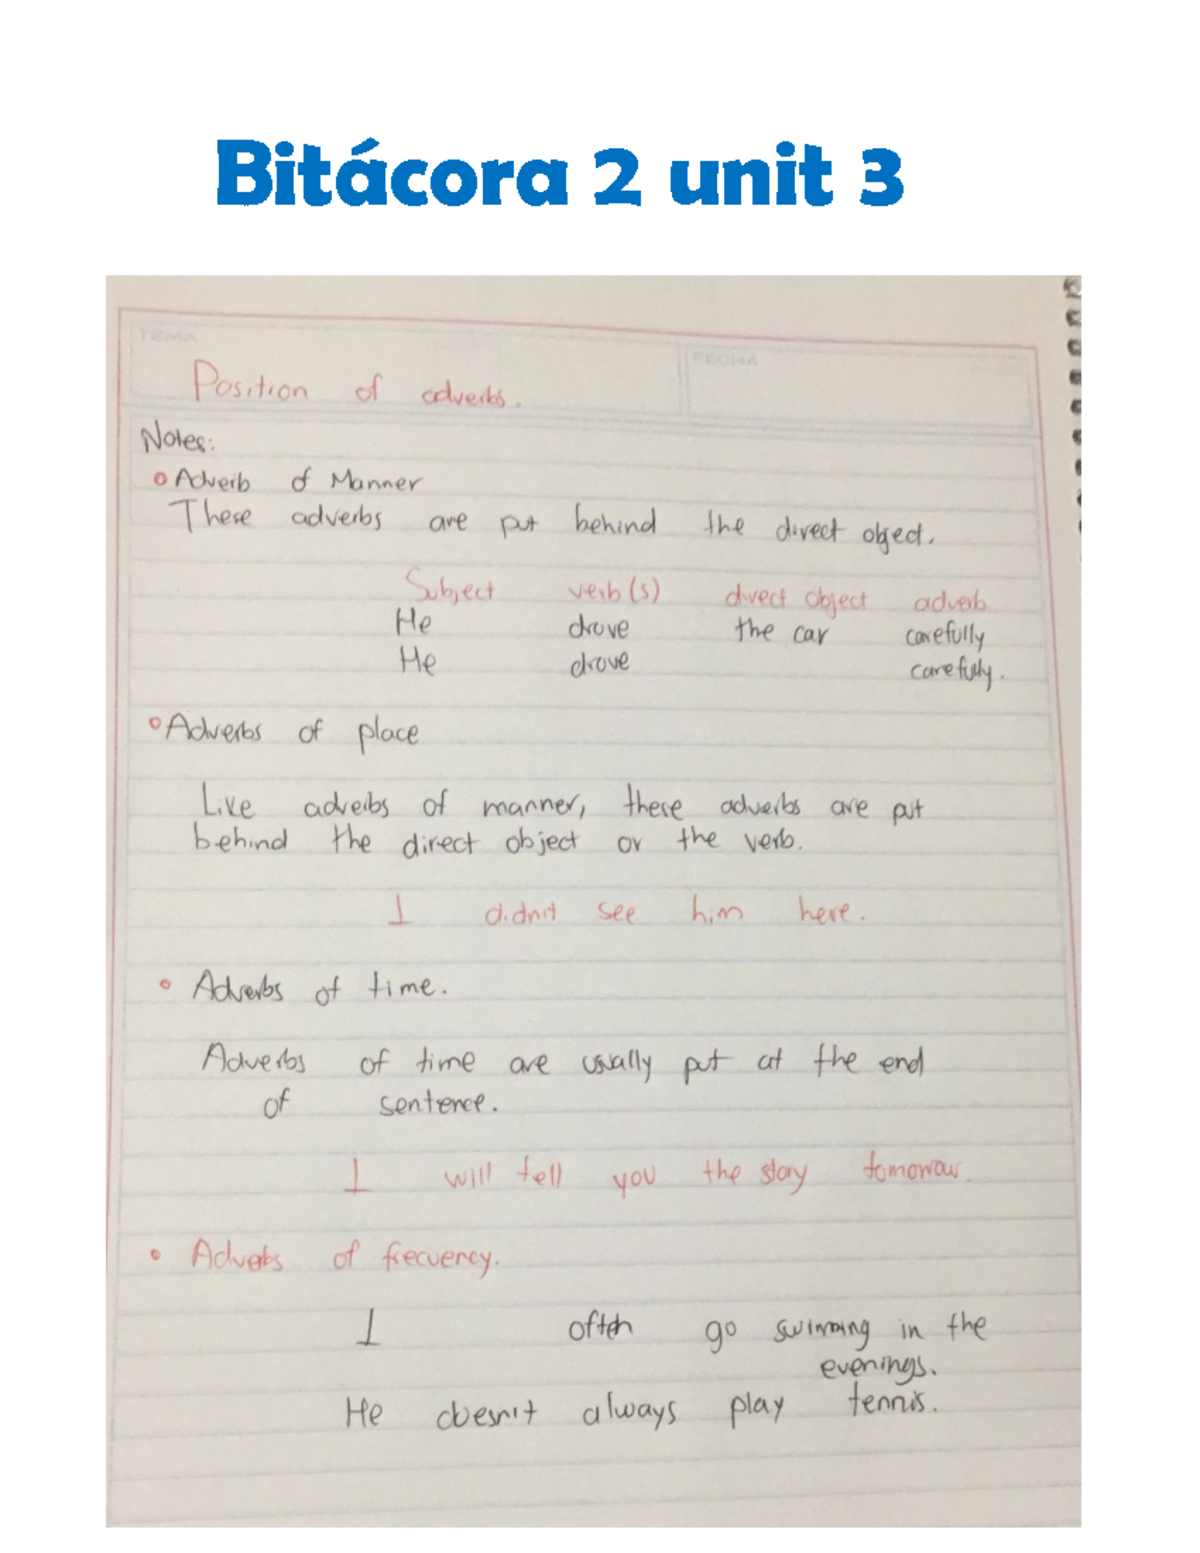 Bitácora 2 unit 3
TEMA
FECHA
Position of adverbs.
Notes:
Adverb of Manner
These adverbs are put behind the direct object.
Subject verb(s) direct object adverb
He drove the car carefully
He drove carefully.
Adverbs of place
Like adverbs of manner, these adverbs are put
behind the direct object or the verb.
I didn't see him here.
Adverbs of time.
Adverbs of time are usually put at the end
of sentence.
I will tell you the story tomorrow.
Adverbs of frecuency.
I often go swimming in the
evenings.
He doesn't always play tennis.